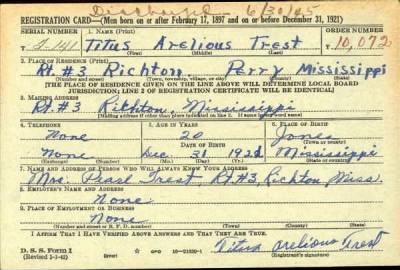 Discharged 6/30/45
REGISTRATION CARD—(Men born on or after February 17, 1897 and on or before December 31, 1921)
SERIAL NUMBER 1. NAME (Print) ORDER NUMBER
T-141 Titus Arelious Trest 10,072
(First) (Middle) (Last)
2. PLACE OF RESIDENCE (Print)
Rt. #3 Richton Perry Mississippi
(Number and street) (Town, township, village, or city) (County) (State)
[THE PLACE OF RESIDENCE GIVEN ON THE LINE ABOVE WILL DETERMINE LOCAL BOARD
JURISDICTION; LINE 2 OF REGISTRATION CERTIFICATE WILL BE IDENTICAL]
3. MAILING ADDRESS
Rt. #3 Richton, Mississippi
[Mailing address if other than place indicated on line 2. If same insert word same]
4. TELEPHONE 5. AGE IN YEARS 6. PLACE OF BIRTH
None 20 Jones
DATE OF BIRTH (Town or county)
None Dec. 31 1921 Mississippi
(Exchange) (Number) (Mo.) (Day) (Yr.) (State or country)
7. NAME AND ADDRESS OF PERSON WHO WILL ALWAYS KNOW YOUR ADDRESS
Mrs. Trest Rt. #3, Richton Miss.
8. EMPLOYER'S NAME AND ADDRESS
None
9. PLACE OF EMPLOYMENT OR BUSINESS
None
(Number and street or R. F. D. number) (Town) (County) (State)
I AFFIRM THAT I HAVE VERIFIED ABOVE ANSWERS AND THAT THEY ARE TRUE.
D. S. S. Form 1 (over) Titus Arelious Trest
(Revised 1-1-42) (Registrant's signature)